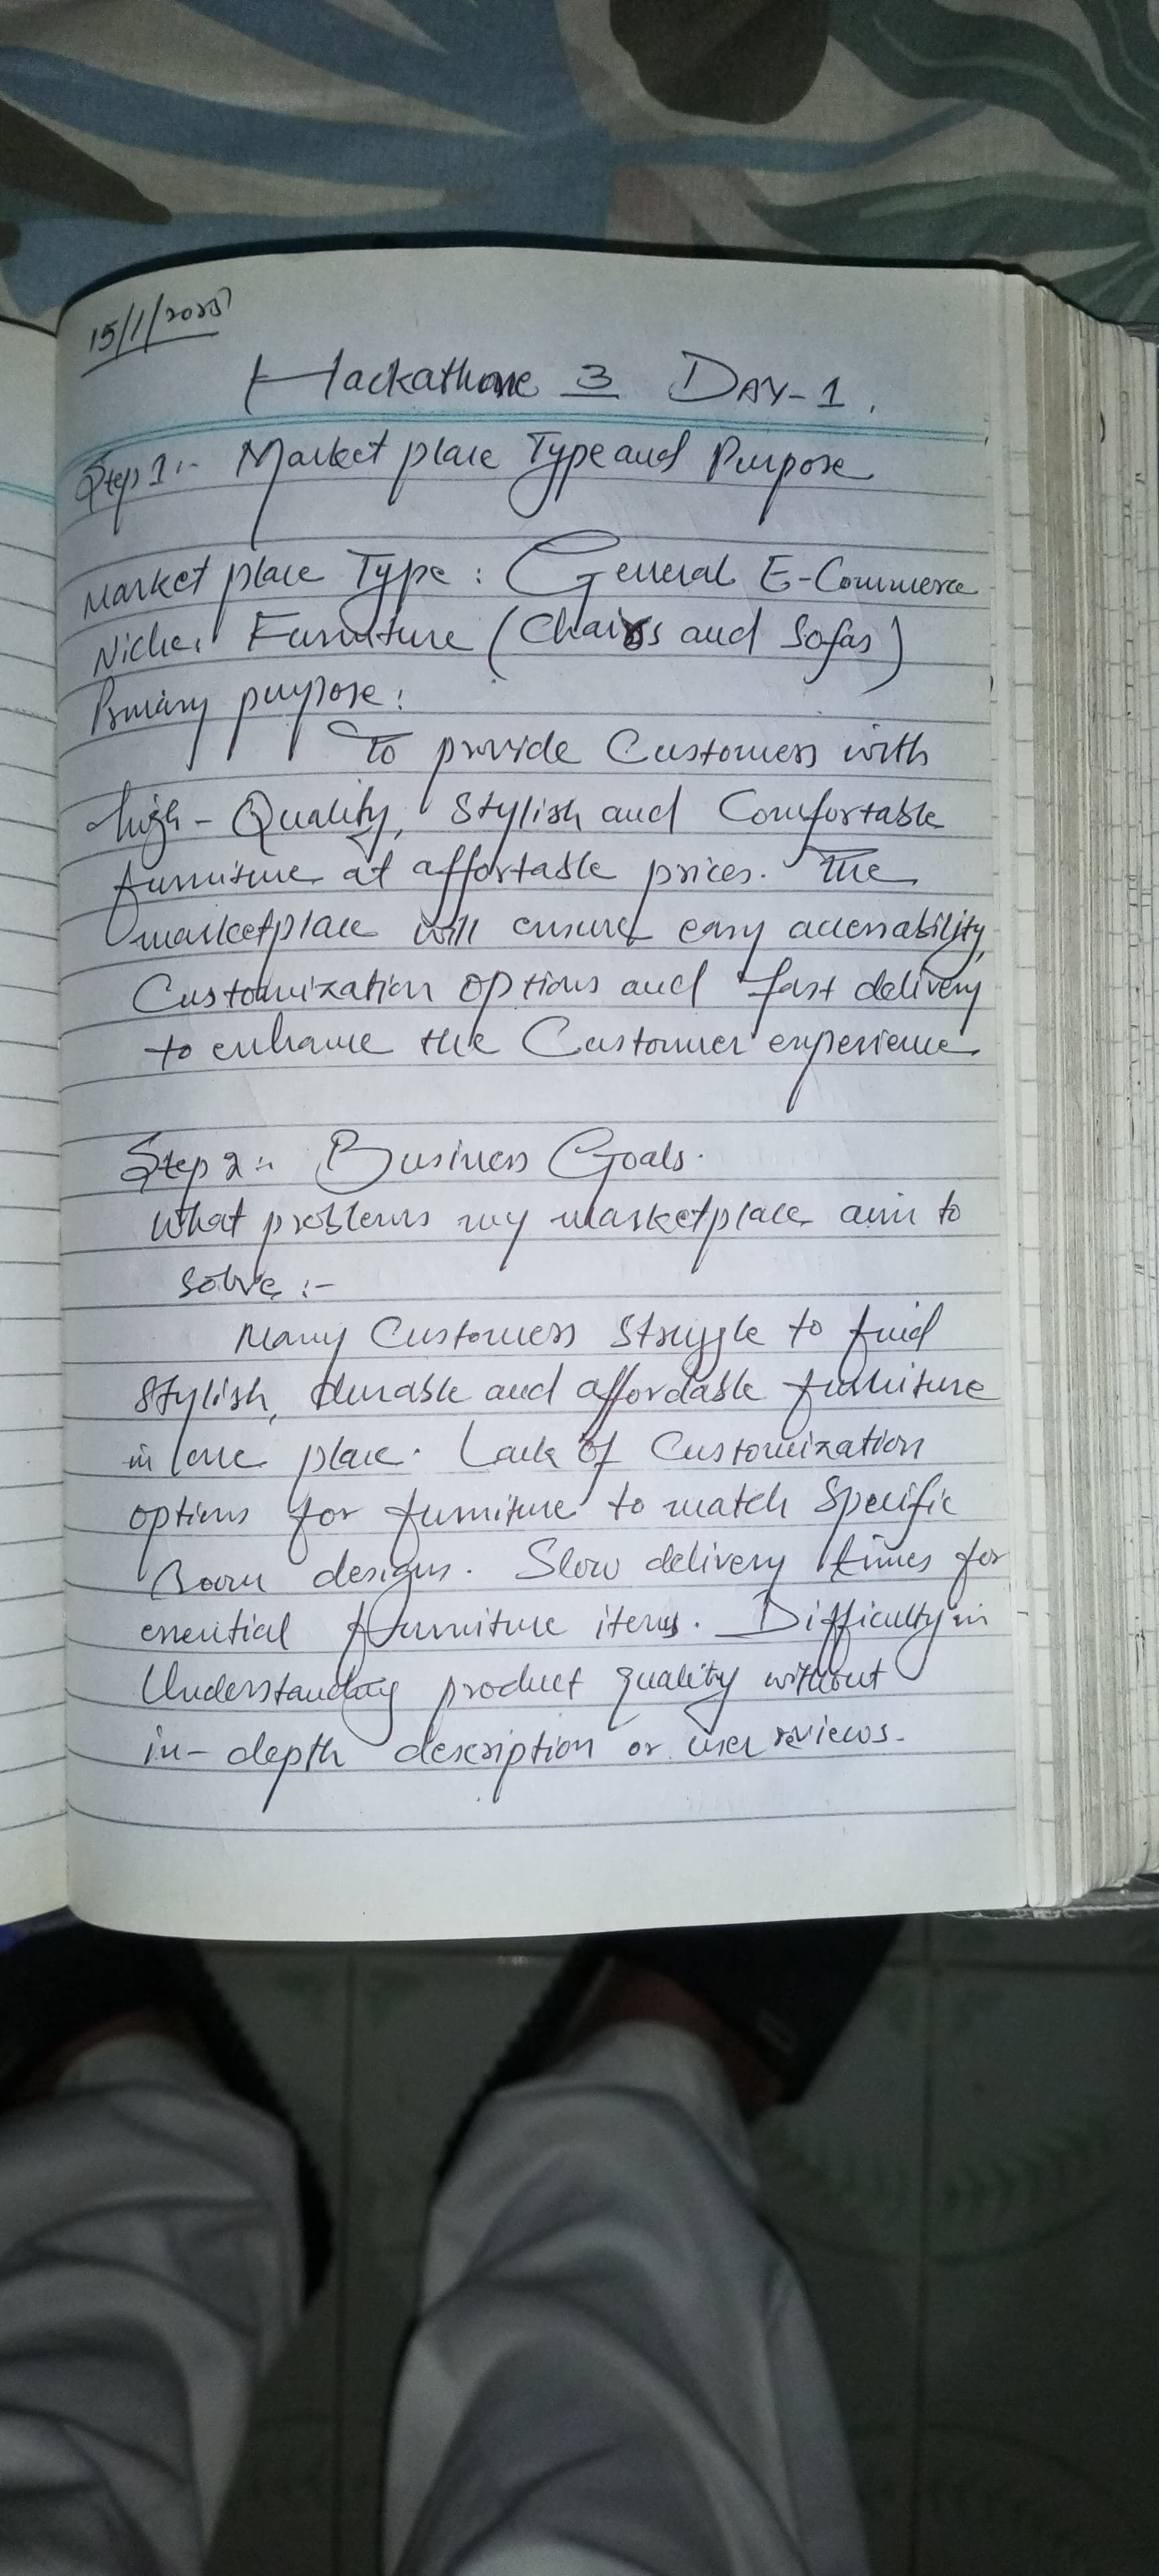 15/1/2025
Hackathone 3 DAY-1.
Step 1:- Market place Type and Purpose
Market place Type : General E-Commerce
Niche. Furniture (Chairs and Sofas)
Primary purpose:
To provide Customers with
high-Quality, Stylish and Comfortable
furniture at affortable prices. The
marketplace will ensure easy accessability,
Customization options and fast delivery
to enhance the Customer experience.
Step 2:- Business Goals.
What problems my marketplace aim to
solve :-
Many Customers Struggle to find
Stylish, durable and affordable furniture
in one place. Lack of Customization
options for furniture to match Specific
Room designs. Slow delivery times for
essential furniture items. Difficulty in
Understanding product quality without
in-depth description or user reviews.